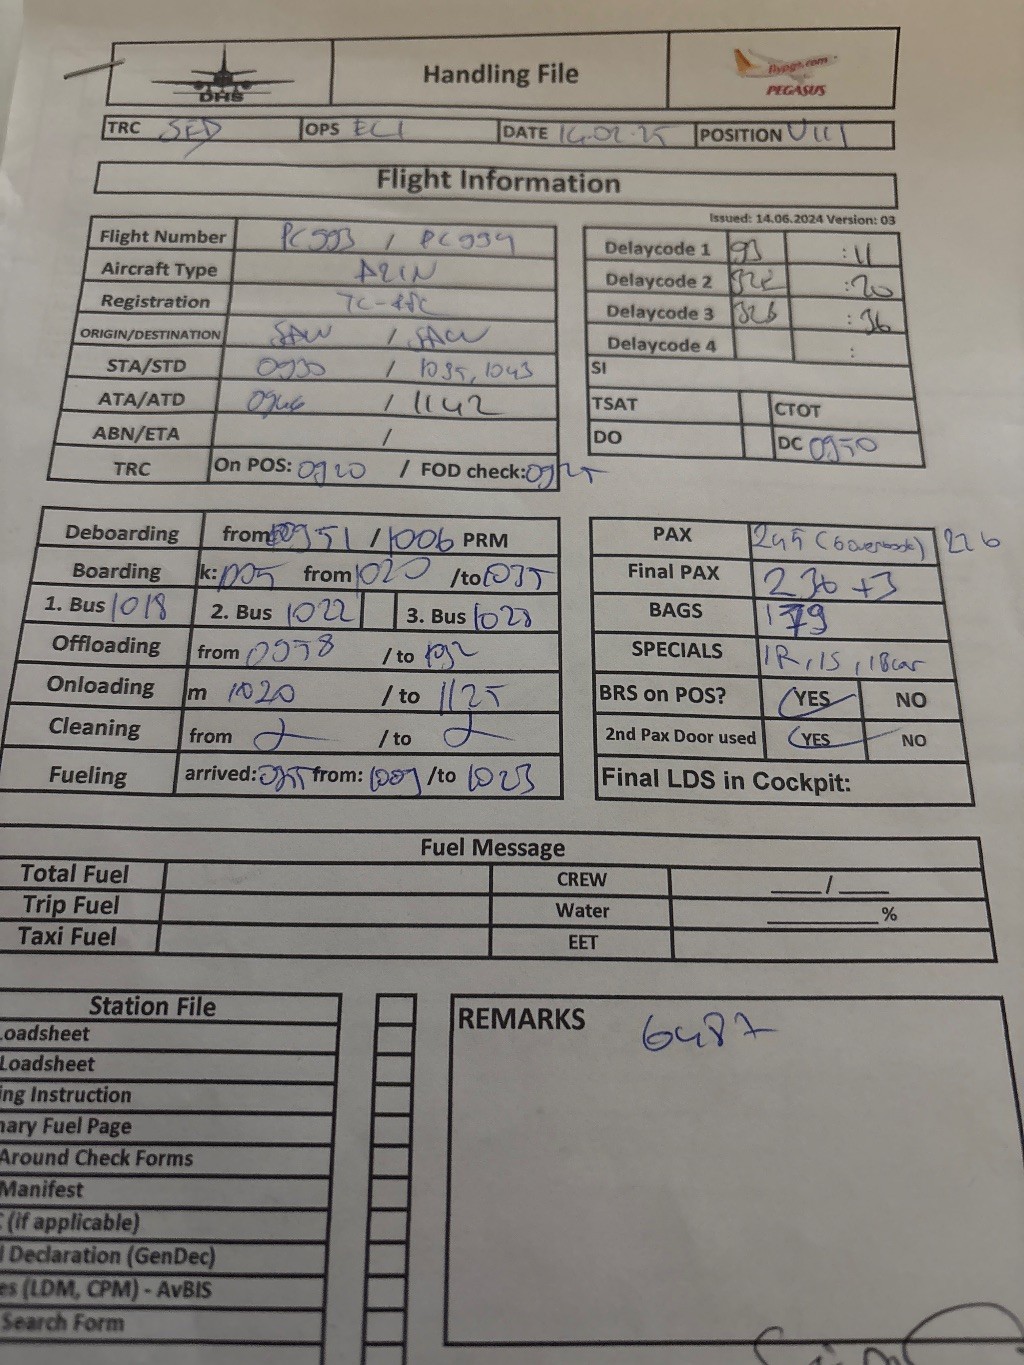 DHS
Handling File
flypgs.com
PEGASUS
TRC SED OPS ECI DATE 14.02.25 POSITION V111
Flight Information
Issued: 14.06.2024 Version: 03
Flight Number PC993 / PC994
Aircraft Type A21N
Registration
ORIGIN/DESTINATION SAW / SAW
STA/STD 0930 / 1035, 1043
ATA/ATD 0946 / 1142
ABN/ETA /
TRC On POS: 0920 / FOD check: 0925
Delaycode 1 93 :11
Delaycode 2 32E :20
Delaycode 3 32B :36
Delaycode 4 :
SI
TSAT CTOT
DO DC 0950
Deboarding from 0951 / 1006 PRM
Boarding k: 1005 from 1020 /to 1035
1. Bus 1018 2. Bus 1022 3. Bus 1028
Offloading from 0958 / to
Onloading m 1020 / to 1125
Cleaning from / to
Fueling arrived: 0955 from: 1009 /to 1023
PAX 245 (6 overbook) 226
Final PAX 236 +3
BAGS 179
SPECIALS 1R, 1S, 18car
BRS on POS? YES NO
2nd Pax Door used YES NO
Final LDS in Cockpit:
Fuel Message
Total Fuel CREW ____/____
Trip Fuel Water ________%
Taxi Fuel EET
Station File
Loadsheet
Loadsheet
ing Instruction
nary Fuel Page
Around Check Forms
Manifest
(if applicable)
l Declaration (GenDec)
es (LDM, CPM) - AvBIS
Search Form
REMARKS 6487